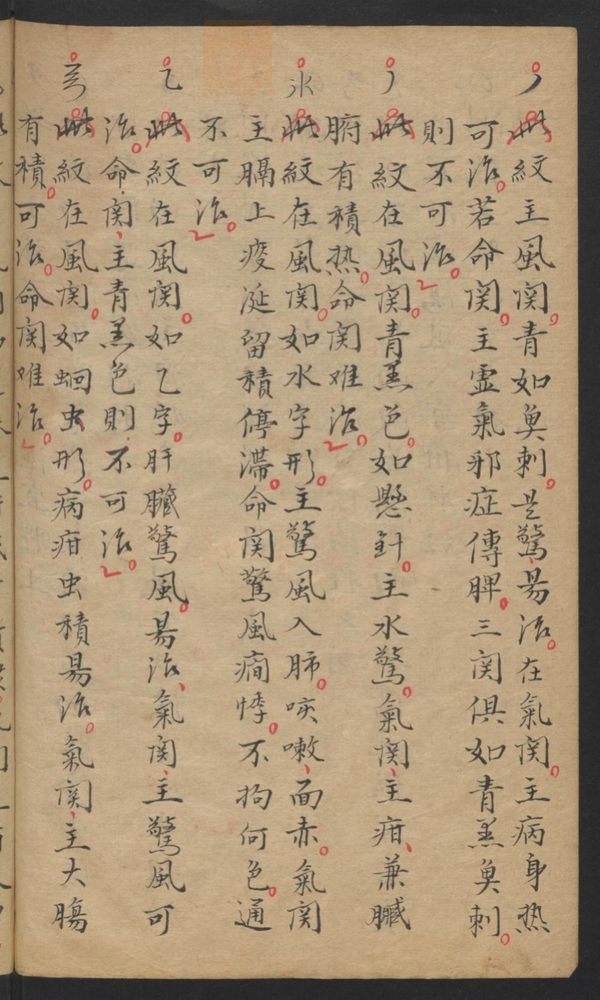 丿此紋主風関。青如奥刺。是驚易治。在氣関。主病身热
可治。若命関。主虚氣邪症傳脾。三関俱如青黒奥刺。
則不可治。
丿此紋在風関。青黒色。如懸針。主水驚。氣関、主疳、兼臟
腑有積热。命関难治。
水此紋在風関。如水字形。主驚風入肺。咳嗽、面赤。氣関
主膈上痰涎留積停滯。命関驚風癎悸。不拘何色。通
不可治。
乙此紋在風関。如乙字。肝臟驚風。易治、氣関、主驚風可
治。命関、主青黒色則不可治。
此紋在風関。如蛔虫形。病疳虫積易治。氣関、主大腸
有積。可治。命関难治。